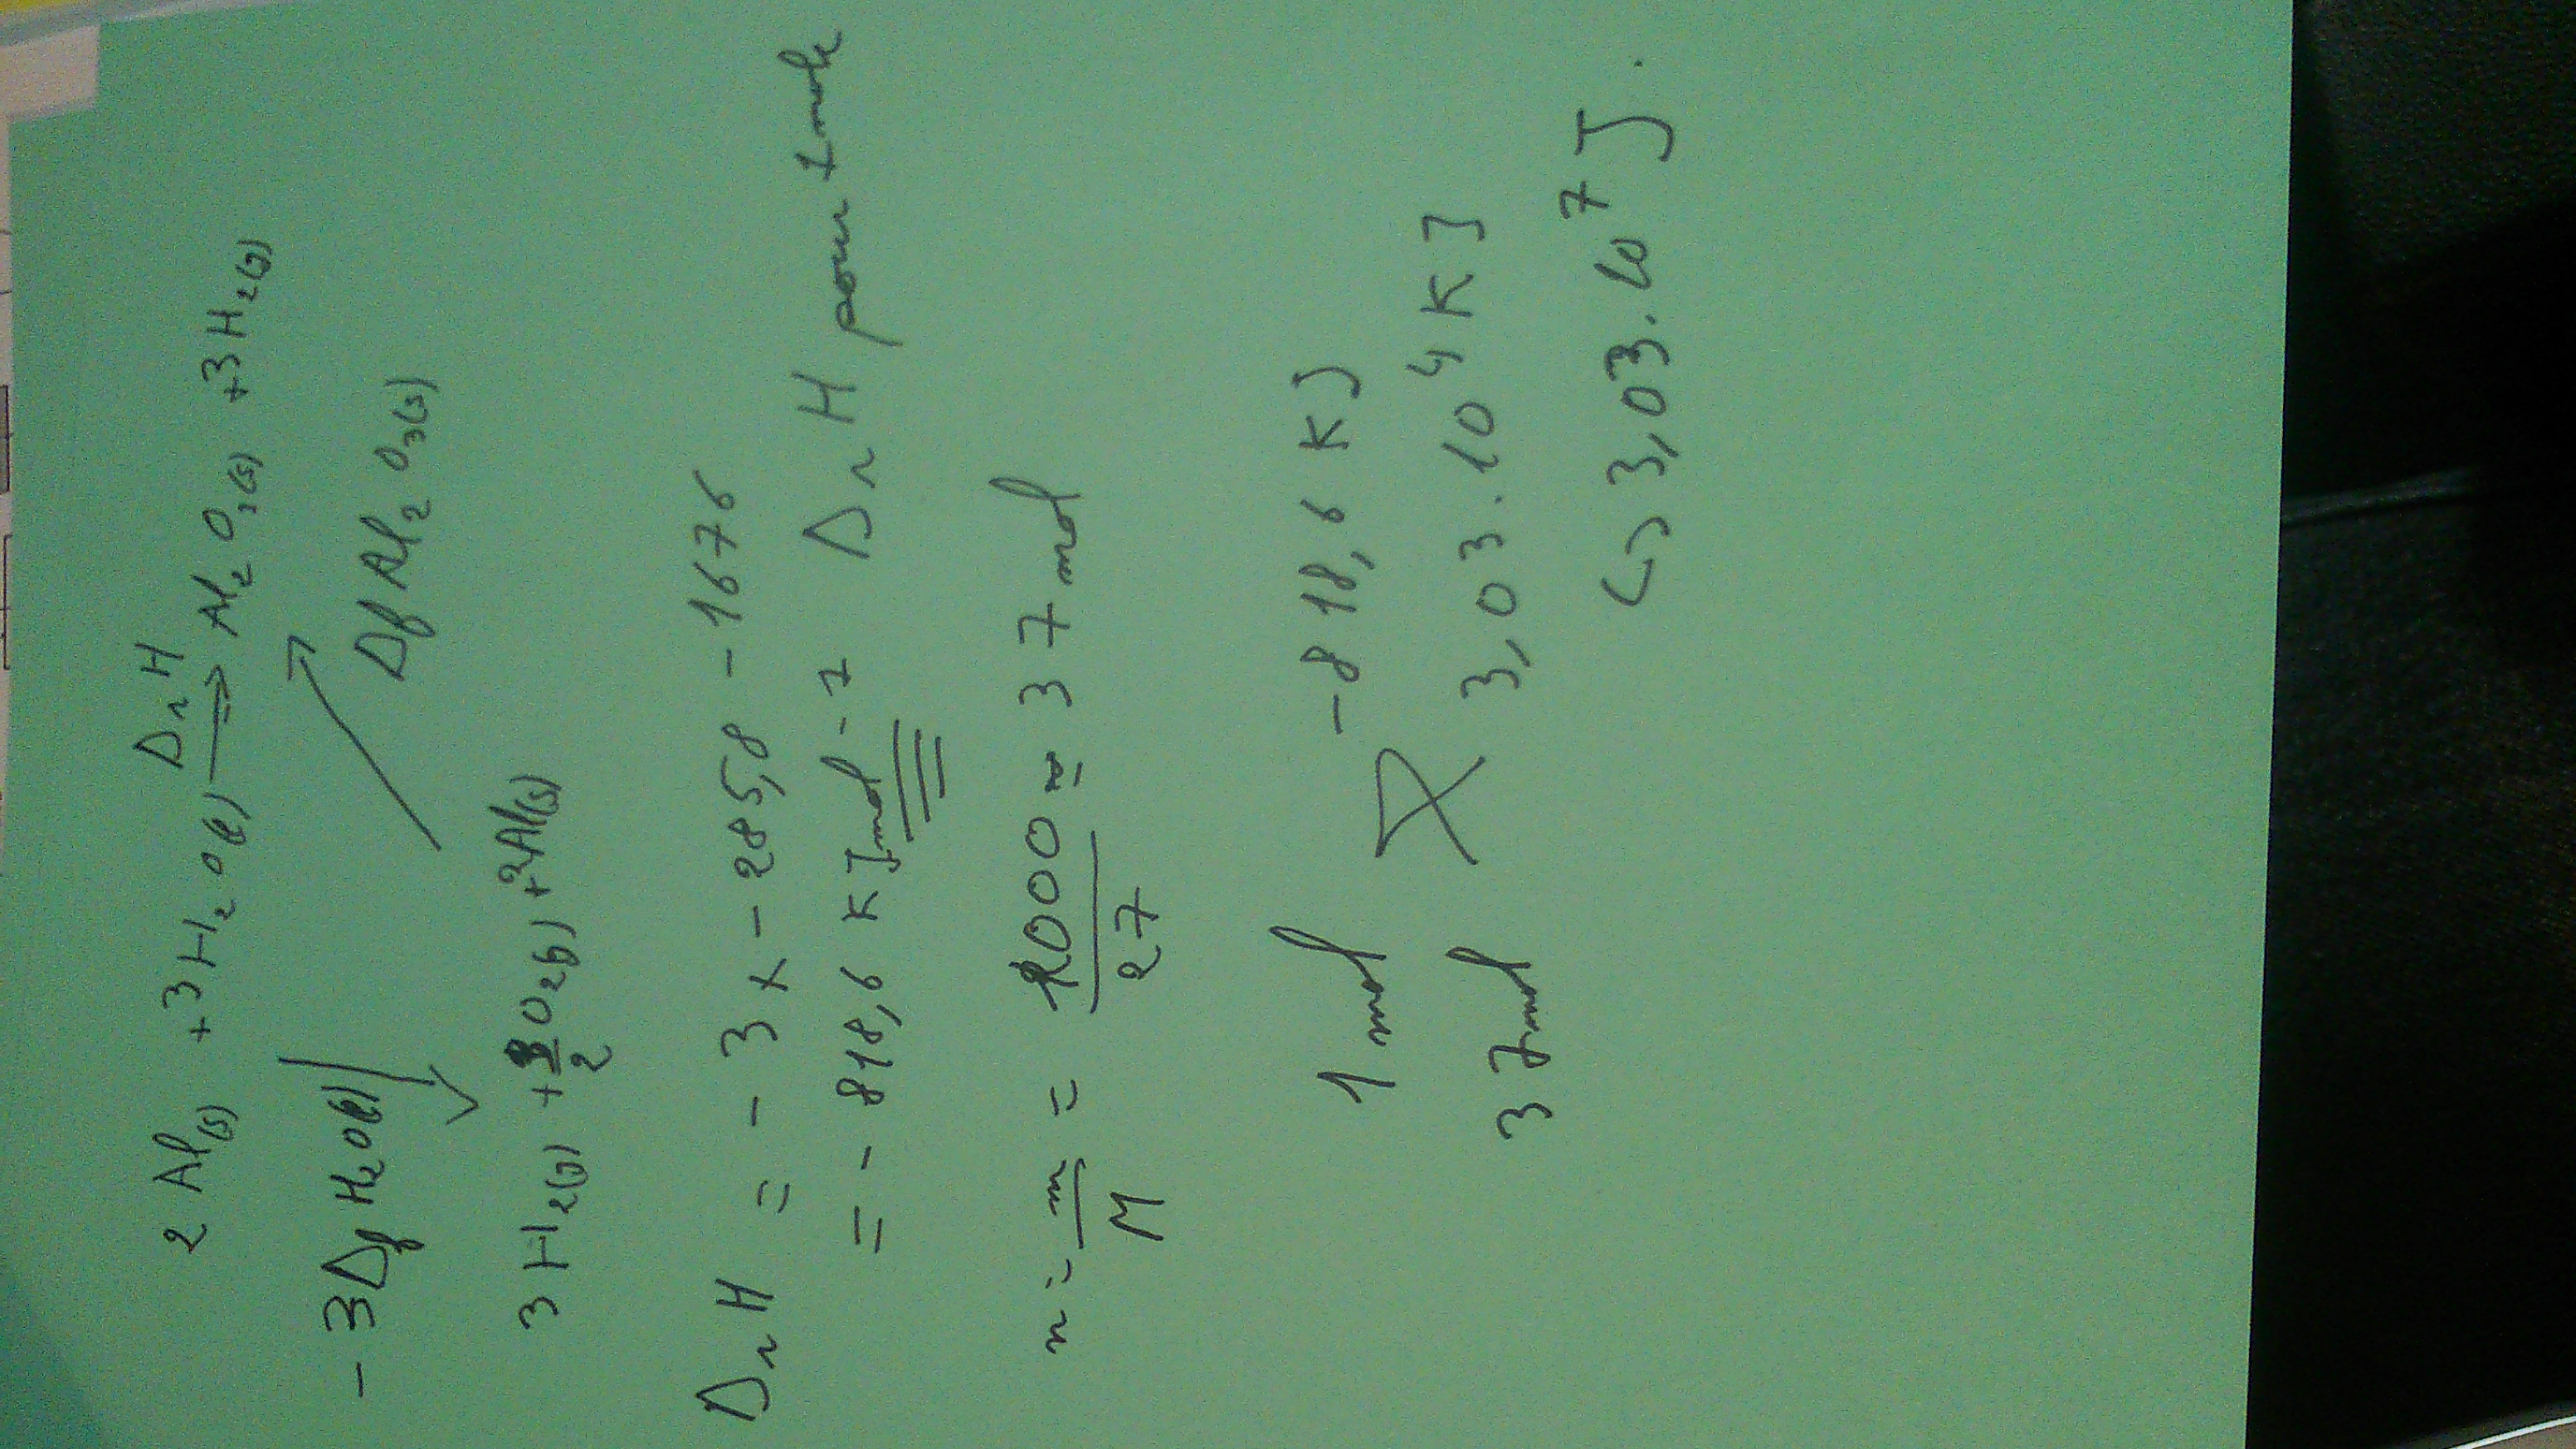 2 Al(s) + 3H₂O(l) ⟶ Al₂O₃(s) + 3H₂(g)
ΔrH
-3Δf H₂O(l)
Δf Al₂O₃(s)
3 H₂(g) + 3/2 O₂(g) + 2Al(s)
ΔrH = - 3 x - 285,8 - 1676
= - 818,6 KJ mol-1 ΔrH pour 1 mole
n = m/M = 1000/27 ≈ 37 mol
1 mol -818,6 KJ
37 mol 3,03.10⁴ KJ
↳ 3,03.10⁷ J.